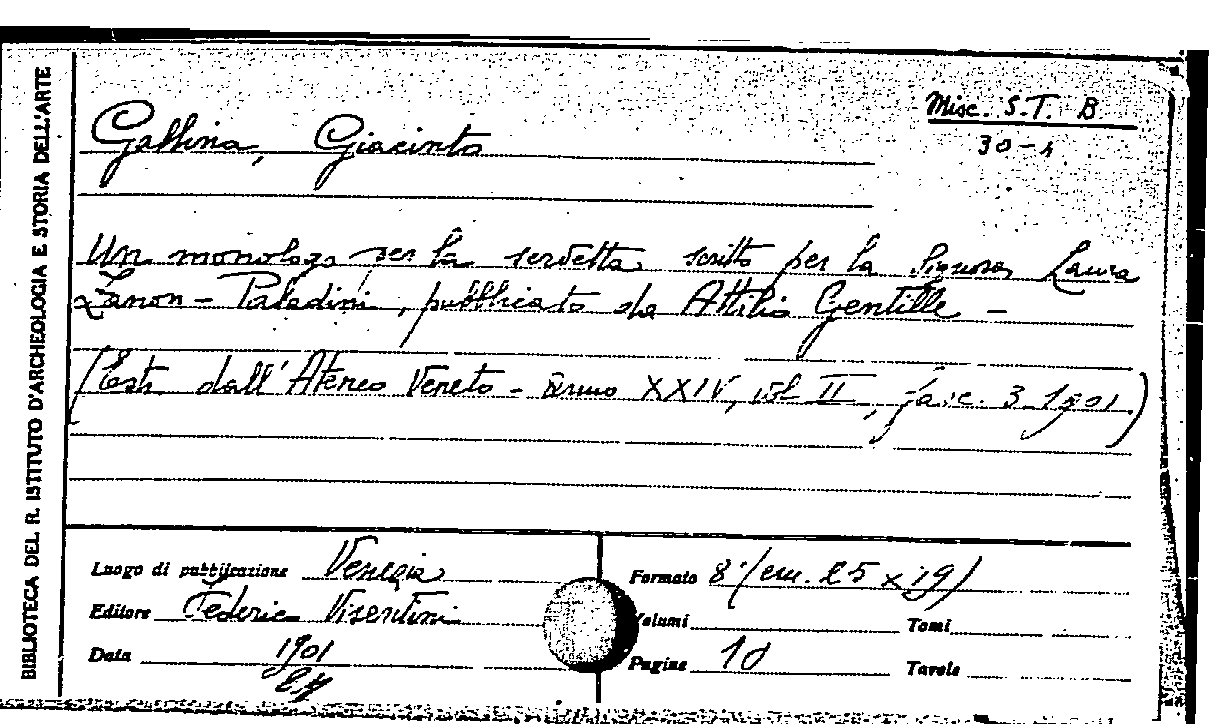 BIBLIOTECA DEL R. ISTITUTO D'ARCHEOLOGIA E STORIA DELL'ARTE
Misc. S.T. B
30-
Gallina, Giacinto
Un monologo per la servetta scritto per la Signora Laura
Zanon - Paladini, pubblicato da Attilio Gentille -
(Estr. dall'Ateneo Veneto - Anno XXIV, vol II, fasc. 3 1901)
Luogo di pubblicazione Venezia
Formato 8° (cm. 25 x 19)
Editore Federico Visentini
Volumi
Tomi
Data 1901
Pagine 10
Tavole